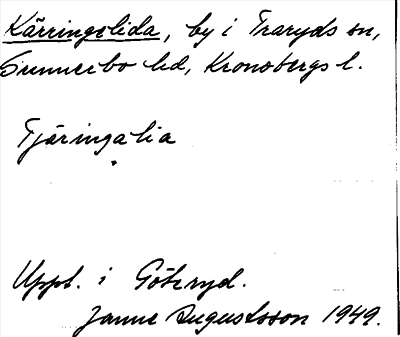 Kärringelida, by i Traryds sn,
Sunnerbo hd, Kronobergs l.
Tjäringalia
Uppt. i Göteryd.
Janne Augustsson 1949.